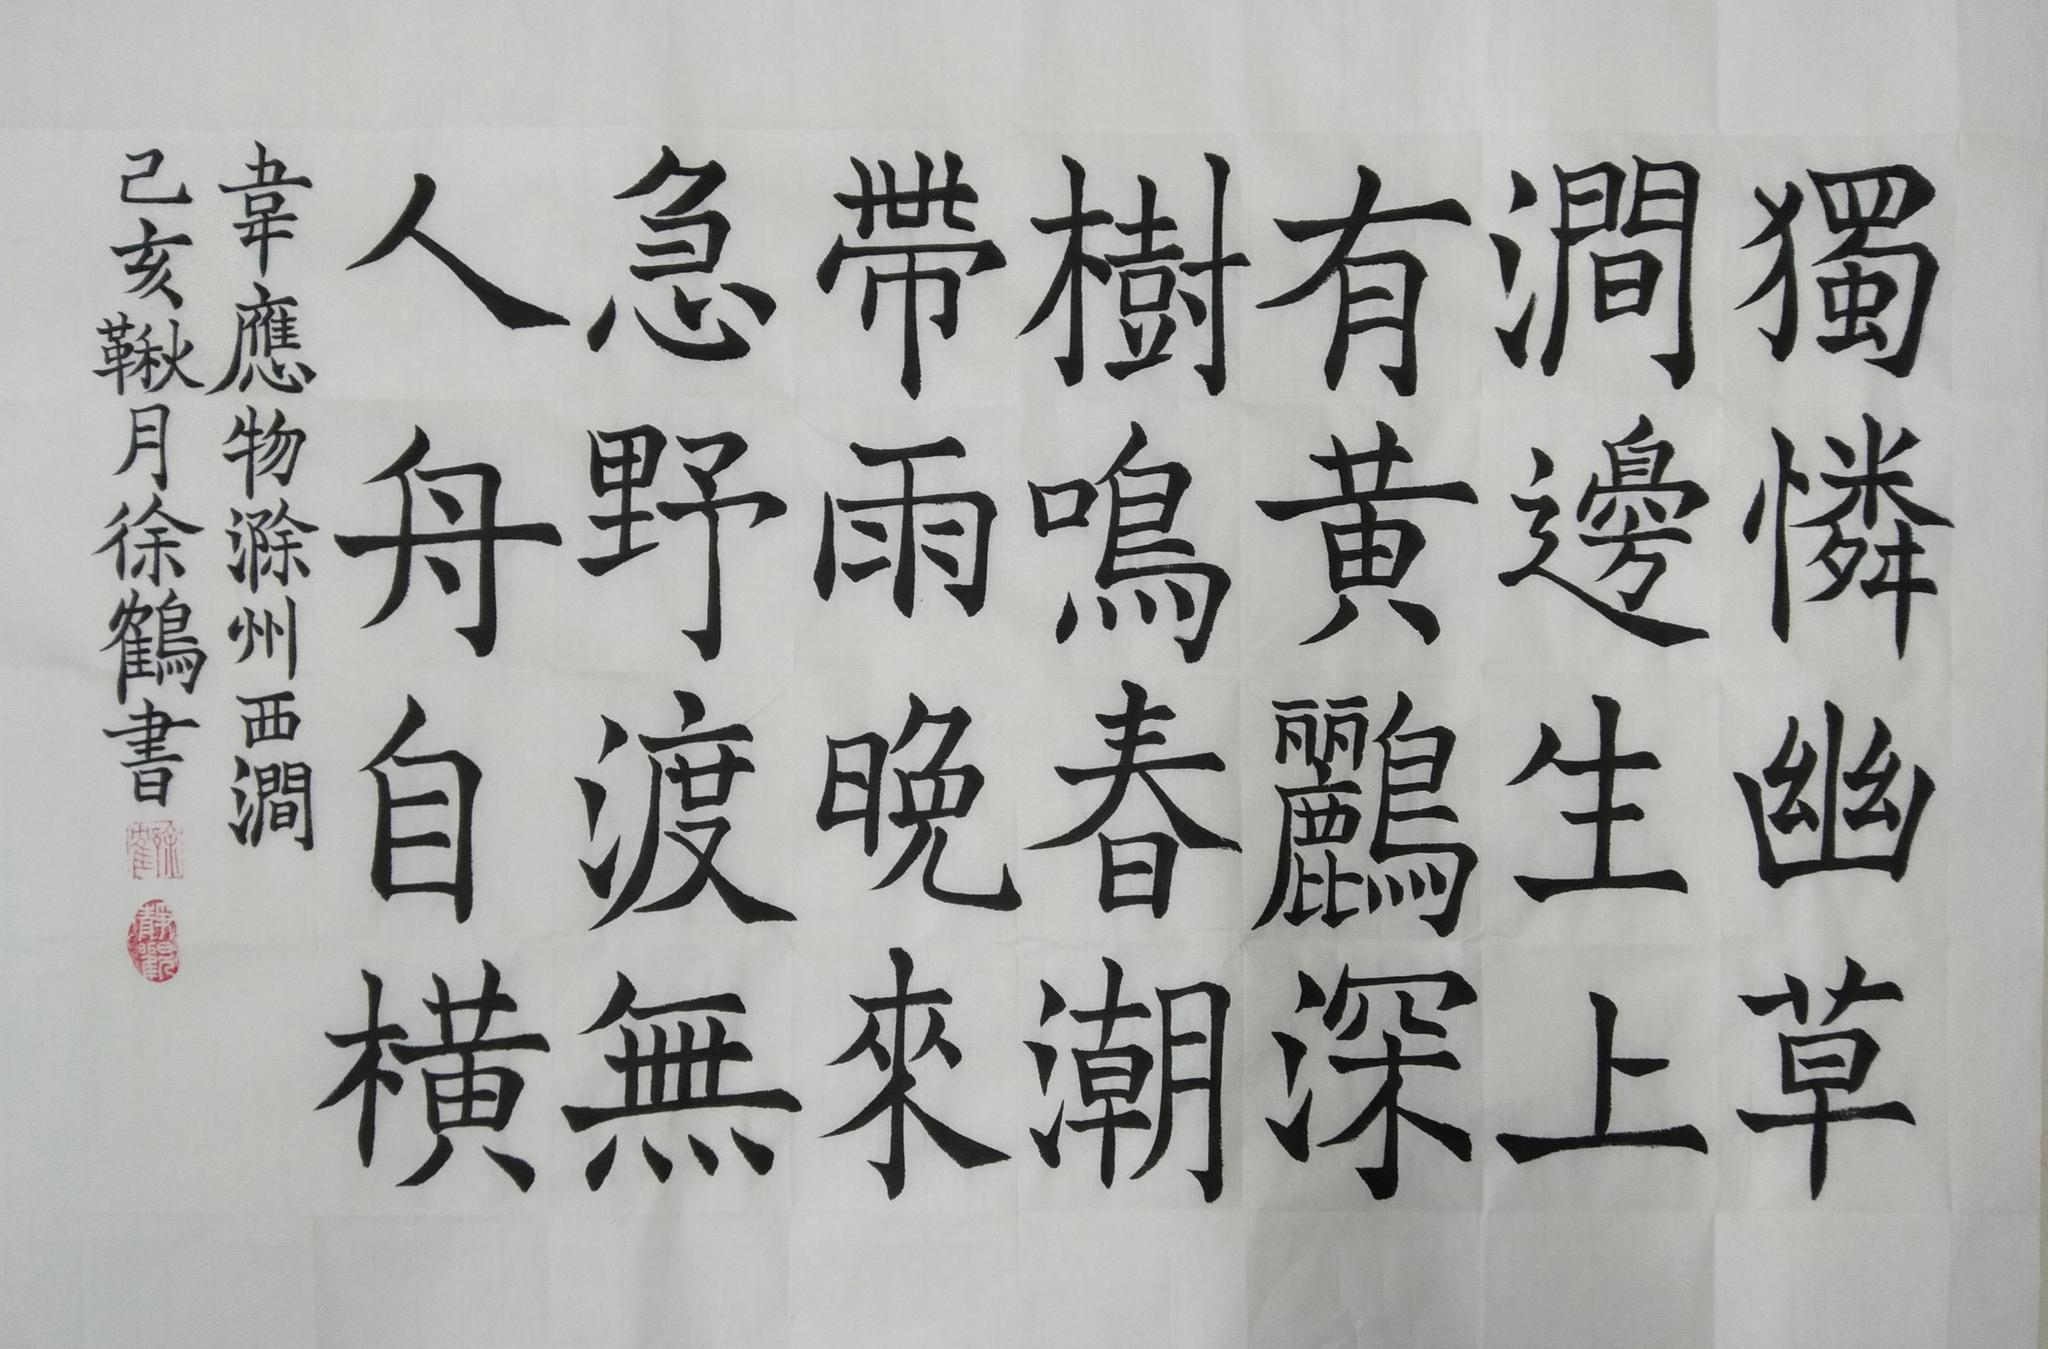 獨憐幽草
澗邊生上
有黄鸝深
樹鳴春潮
帶雨晚來
急野渡無
人舟自橫
韋應物滁州西澗
己亥鞦月徐鶴書
徐鶴
靜觀